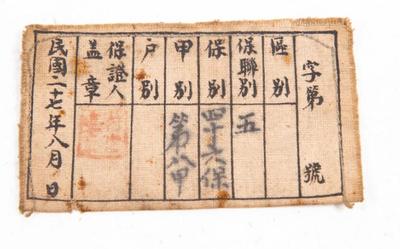 字第 號
區別
保聯別 五
保別 四十六保
甲別 第八甲
戶別
保證人
盖章
民國二十七年八月 日